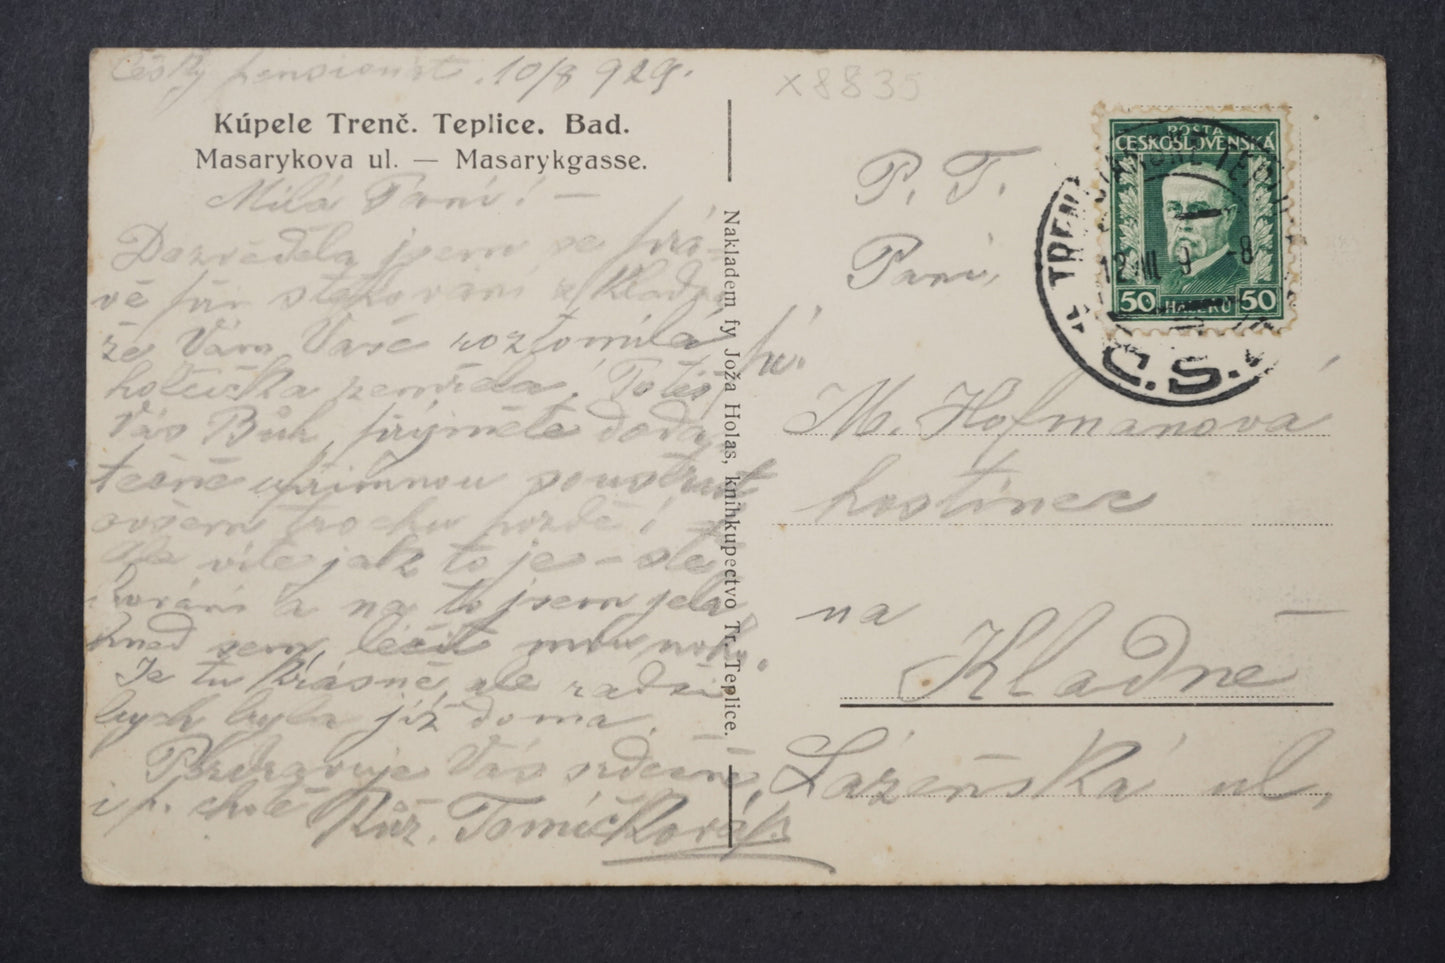 Český pensionát 10/8 929.
Kúpele Trenč. Teplice. Bad.
Masarykova ul. — Masarykgasse.
Milá Paní! —
Dozvěděla jsem se prá-
vě při stonování z Kladna,
že Vám Vaše roztomilá
holčička zemřela! Potěš
Vás Bůh, přijměte doda-
tečně upřímnou soustrast
ovšem trochu pozdě!
Ale víte jak to je - stě-
hování a na to jsem jela
hned sem, léčit mou nohu.
Je tu krásně, ale radši
bych byla již doma.
Pozdravuje Vás srdečně
i p. chotě Růž. Tomíčková
Nakladem fy Joža Holas, knihkupectvo Tr. Teplice.
x8835
P. T.
Paní,
M. Hofmanová
hostinec
na
Kladně
Lázeňská ul.
POŠTA
ČESKOSLOVENSKÁ
50 HALÉŘŮ 50
TRENČIANSKE TEPLICE
12.VIII 9 -8
Č.S.